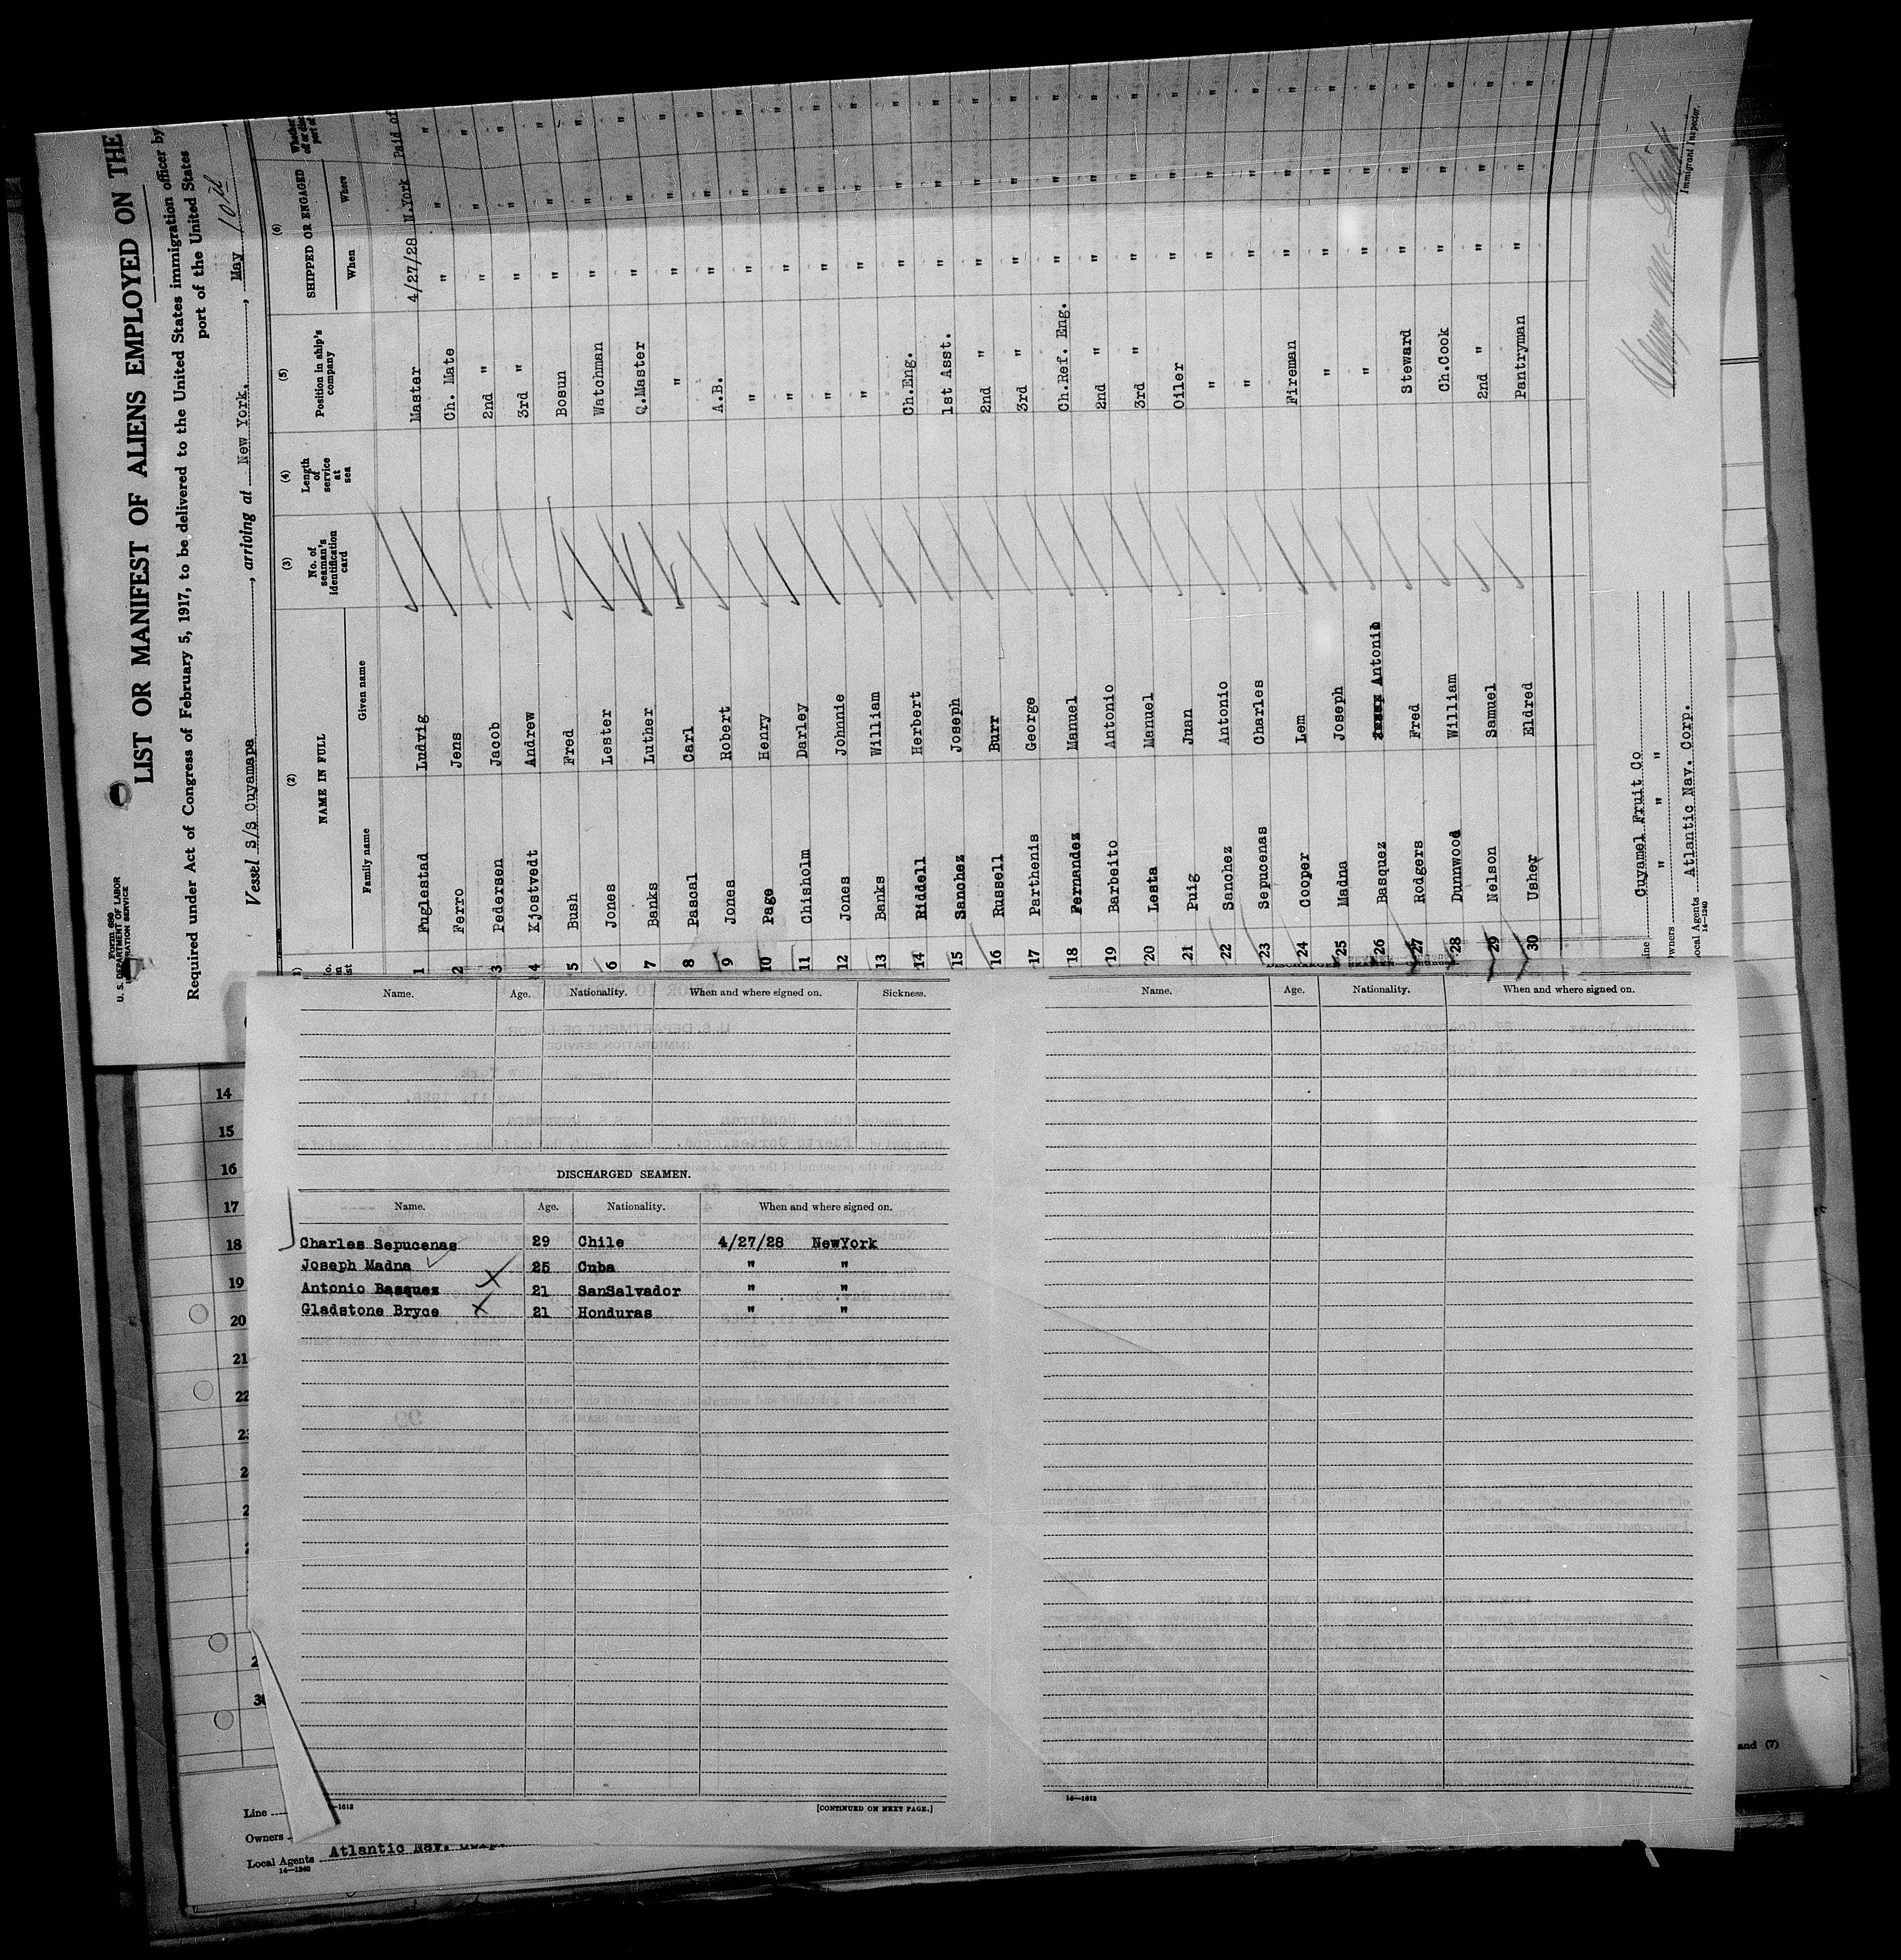 Form 680
U. S. DEPARTMENT OF LABOR
IMMIGRATION SERVICE
LIST OR MANIFEST OF ALIENS EMPLOYED ON THE
Required under Act of Congress of February 5, 1917, to be delivered to the United States immigration officer by
port of the United States
Vessel S/S Cuyamapa, arriving at New York., May 10th
(2) (3) (4) (5) (6)
NAME IN FULL No. of seaman's identification card Length of service at sea Position in ship's company SHIPPED OR ENGAGED Whether
Family name Given name When Where
1 Fuglestad Ludvig Master 4/27/28 N.York Paid of
2 Ferro Jens Ch. Mate " " "
3 Pedersen Jacob 2nd " " " "
4 Kjostvedt Andrew 3rd " " " "
5 Bush Fred Bosun " " "
6 Jones Lester Watchman " " "
7 Banks Luther Q.Master " " "
8 Pascal Carl " " " "
9 Jones Robert A.B. " " "
10 Page Henry " " " "
11 Chisholm Darley " " " "
12 Jones Johnnie " " " "
13 Banks William " " " "
14 Riddell Herbert Ch.Eng. " " "
15 Sanchez Joseph 1st Asst. " " "
16 Russell Burr 2nd " " " "
17 Parthenis George 3rd " " " "
18 Fernandez Manuel Ch.Ref. Eng. " " "
19 Barbeito Antonio 2nd " " " "
20 Lesta Manuel 3rd " " " "
21 Puig Juan Oiler " " "
22 Sanchez Antonio " " " "
23 Sepucenas Charles " " " "
24 Cooper Lem Fireman " " "
25 Madna Joseph " " " "
26 Basquez Antonio " " " "
27 Rodgers Fred Steward " " "
28 Dunnwood William Ch.Cook " " "
29 Nelson Samuel 2nd " " " "
30 Usher Eldred Pantryman " " "
Cuyamel Fruit Co
Owners " " "
Local Agents Atlantic Nav. Corp.
14—1240
Immigrant Inspector.
Name. Age. Nationality. When and where signed on. Sickness.
DISCHARGED SEAMEN.
Name. Age. Nationality. When and where signed on.
Charles Sepucenas 29 Chile 4/27/28 NewYork
Joseph Madna 25 Cuba " "
Antonio Basquez 21 SanSalvador " "
Gladstone Bryce 21 Honduras " "
—1613
[CONTINUED ON NEXT PAGE.]
DISCHARGED SEAMEN—Continued.
Name. Age. Nationality. When and where signed on.
14—1613
14
15
16
17
18
19
20
21
22
30
Line
Owners
Local Agents Atlantic Nav. Corp.
14—1240
and (7)